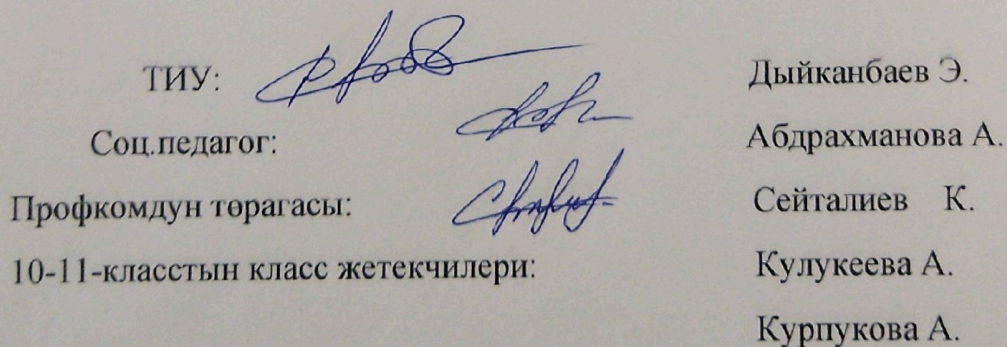 ТИУ: Дыйканбаев Э.
Соц.педагог: Абдрахманова А.
Профкомдун төрагасы: Сейталиев К.
10-11-класстын класс жетекчилери: Кулукеева А.
Курпукова А.